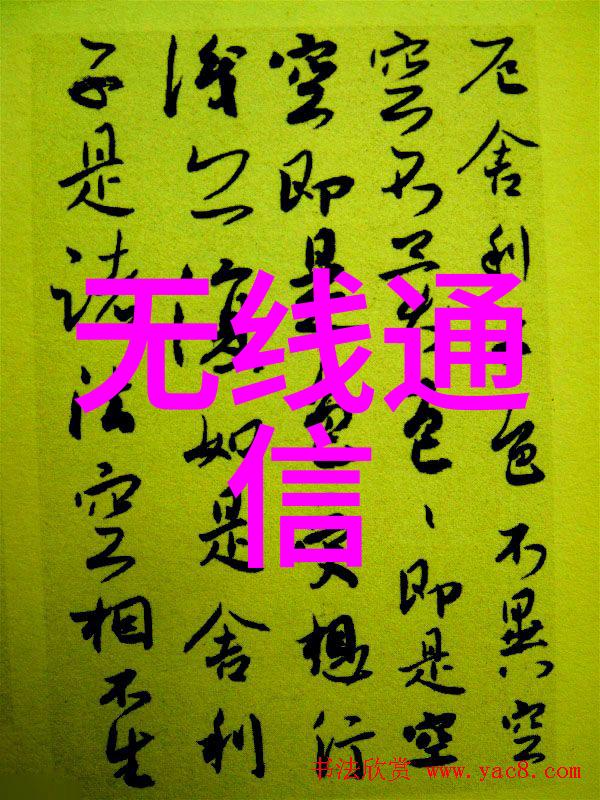 厄舍利子色不異空
空不異色、即是空
空即是色受想行
識亦復如是舍利
子是諸法空相不生
无线通
信
书法欣赏 www.yac8.com